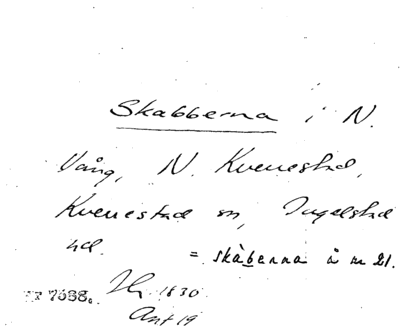 Skabberna i N.
Vång, N. Kvenestad,
Kvenestad sn, Ingelstad
hd.
= skàbenna å m 21.
7688. 1830
Ant 19